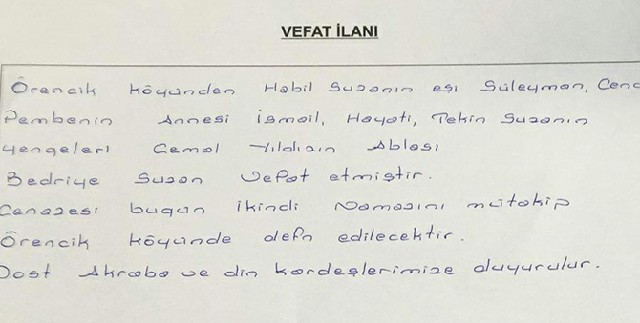 VEFAT İLANI
Örencik Köyünden Habil Suzanın eşi Süleyman, Cena
Pembenin Annesi İsmail, Hayati, Tekin Suzanın
yengeleri Cemal Yıldızın Ablası
Bedriye Suzan Vefat etmiştir.
Cenazesi bugün ikindi Namazını mütakip
Örencik Köyünde defn edilecektir.
Dost Akraba ve din kardeşlerimize duyurulur.